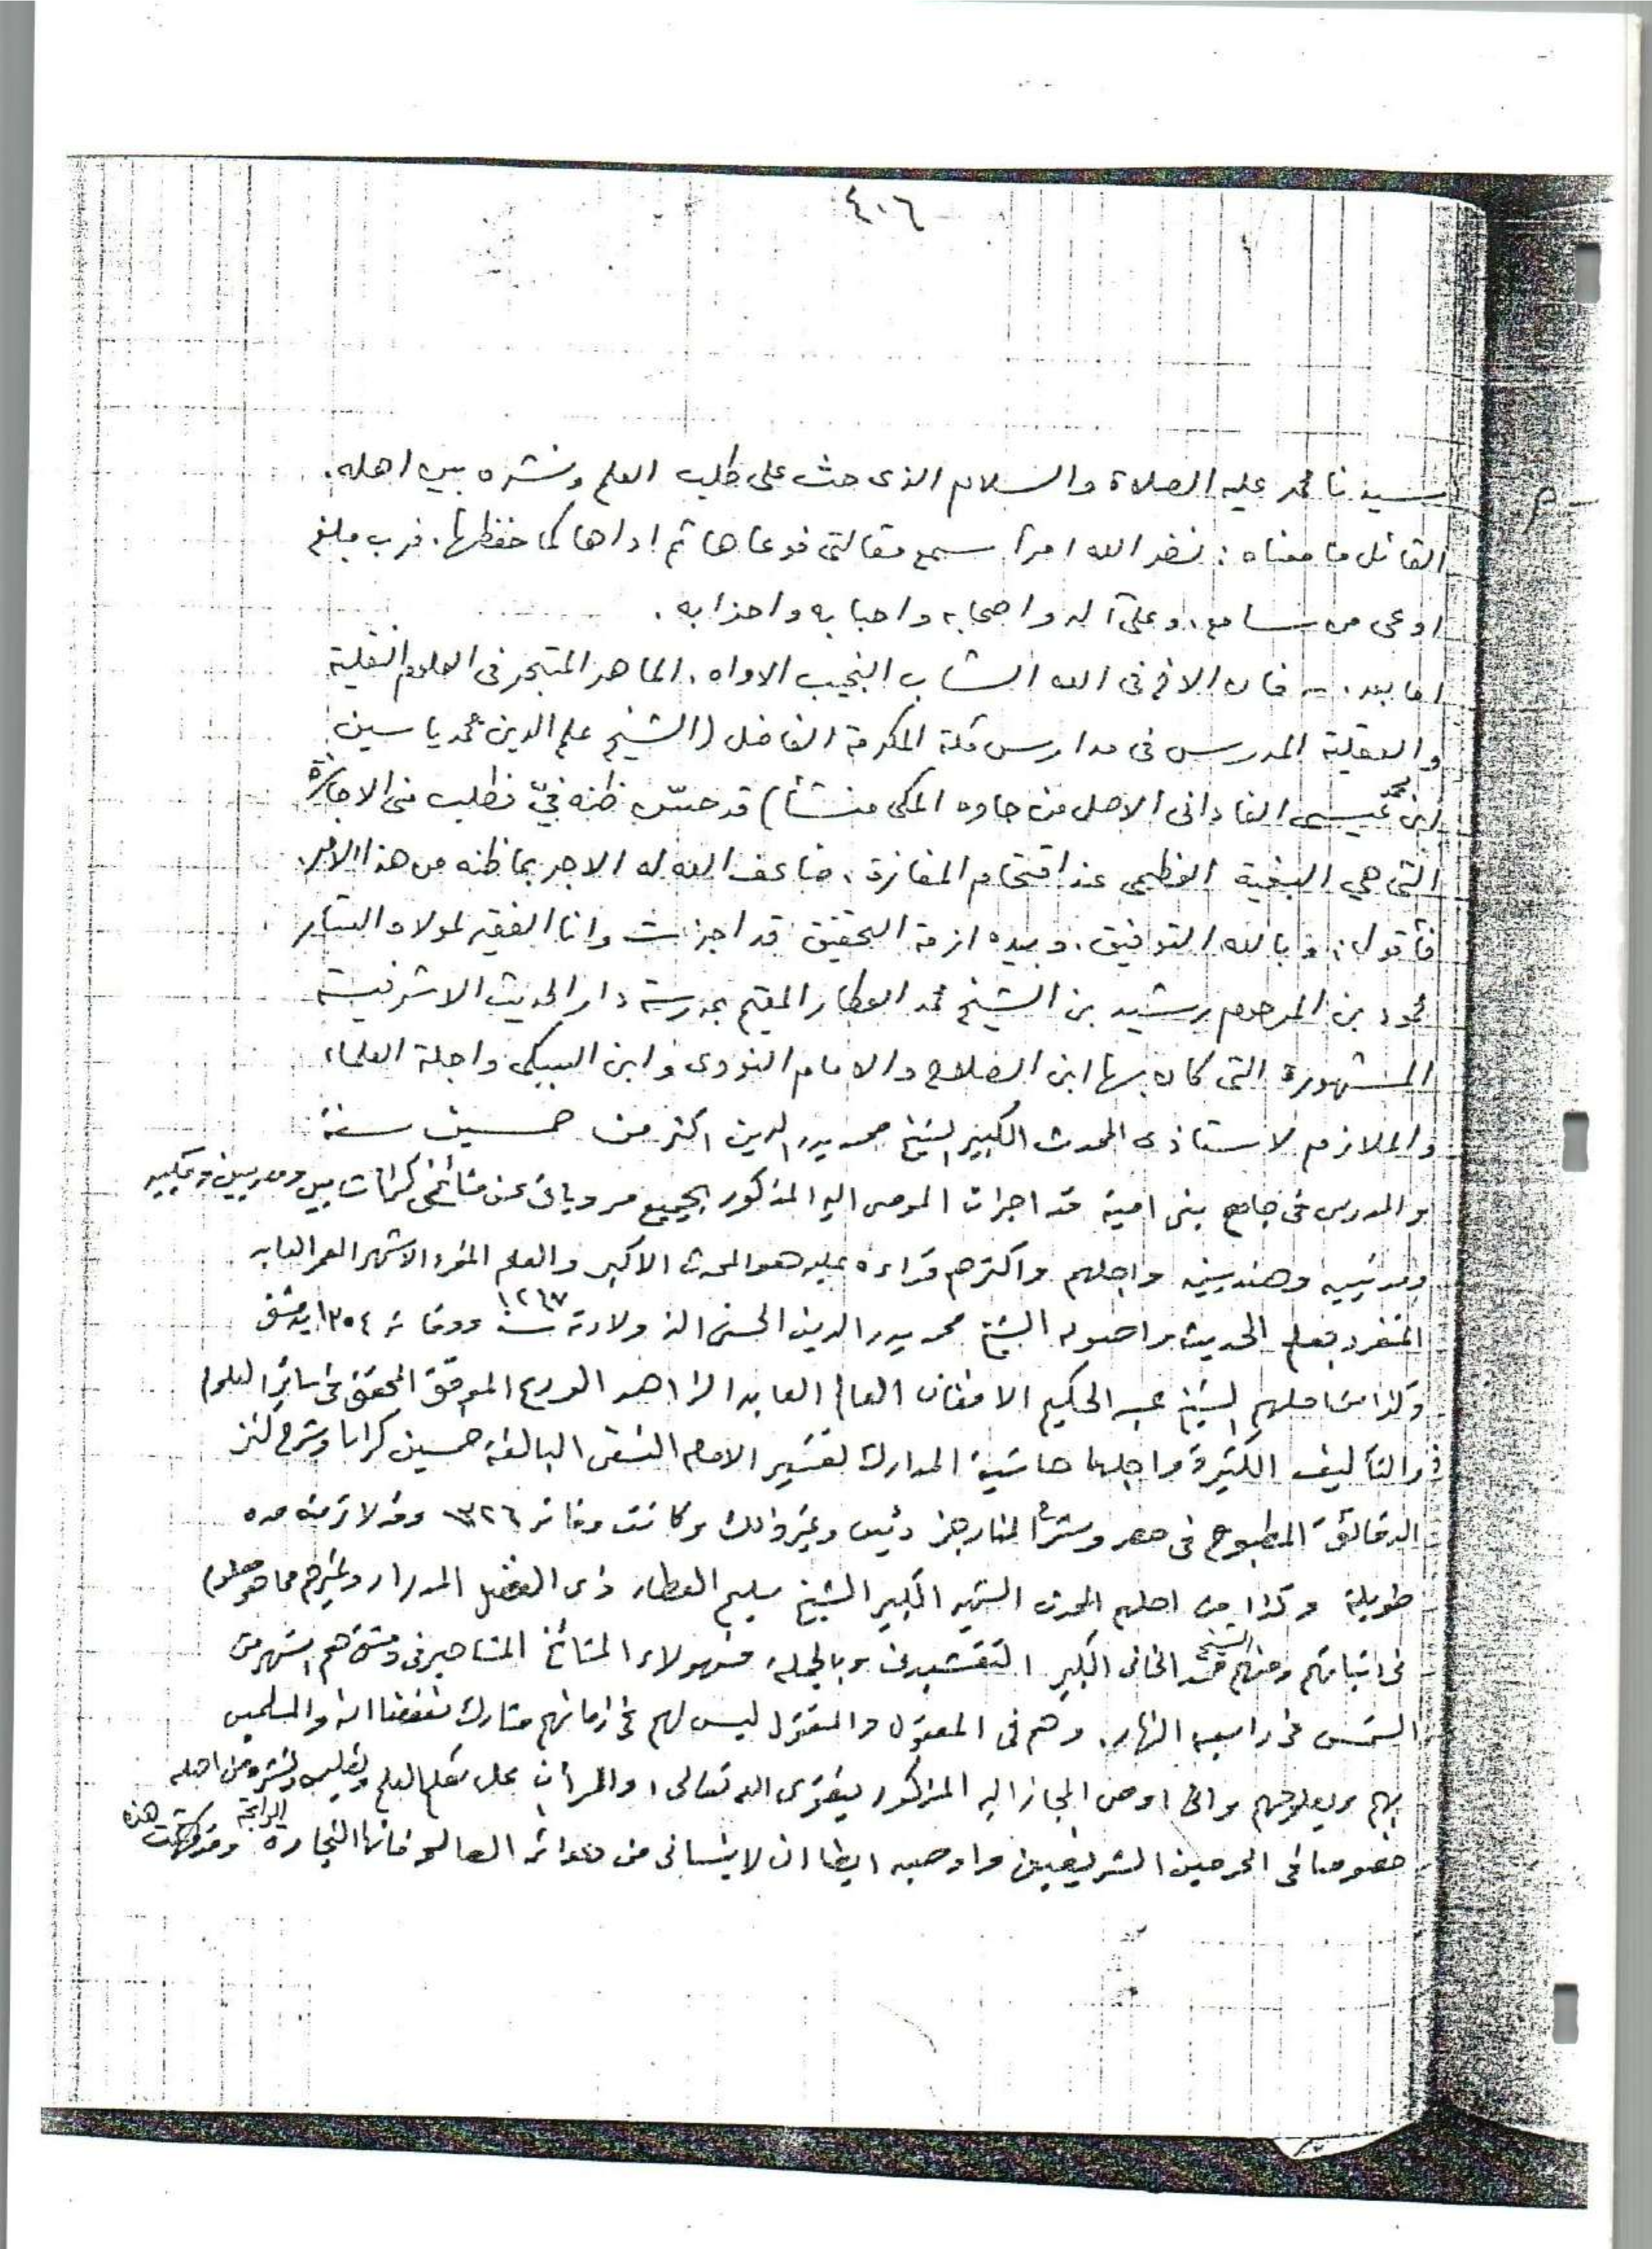 ٤٠٦
سيدنا محمد عليه الصلاة والسلام الذى حث على طلب العلم ونشره بين اهله.
القائل ما معناه: نضر الله امرأ سمع مقالتى فوعاها ثم اداها كما حفظها. فرب مبلغ
اوعى من سامع. وعلى آله واصحابه واحبابه واحزابه.
اما بعد. فان الاخ فى الله الشاب النجيب الاواه. الماهر المتبحر فى العلوم النقلية
والعقلية المدرس فى مدارس مكة المكرمة الفاضل (الشيخ علم الدين محمد ياسين
ابن محمد عيسى الفادانى الاصل من جاوه المكى منشأ) قد حسّن ظنه فيّ فطلب منى الاجازة
التى هي البغية العظمى عند اقتحام المفازة. ضاعف الله له الاجر بما ظنه من هذا الامر.
فأقول: وبالله التوفيق. وبيده ازمة التحقيق قد اجزت وانا الفقير لمولاه الستار
محمود بن المرحوم رشيد بن الشيخ محمد العطار المقيم بمدرسة دار الحديث الاشرفية
المشهورة التى كان بها ابن الصلاح والامام النووى وابن السبكى واجلة العلماء
والملازم لاستاذى المحدث الكبير الشيخ محمد بدر الدين اكثر من خمسين سنة
والمدرس فى جامع بنى امية قد اجزت المومى اليه المذكور بجميع مروياتى عن مشائخى كرامات بيين ومصريين ومكيين
ومدنيين وهنديين واجلهم واكثرهم قراءة عليه هو المحدث الاكبر والعلم المفرد الاشهر المعمر العابد
المنفرد بعلم الحديث واصوله الشيخ محمد بدر الدين الحسنى الذ ولادته سنة ١٢٦٧ ووفاته ١٣٥٤ بدمشق
وكذا من اجلهم الشيخ عبد الحكيم الافغانى العالم العابد الزاهد الورع الموفق المحقق فى سائر العلوم
ذو التآليف الكثيرة واجلها حاشية المدارك لتفسير الامام النسفى البالغة خمسين كراسا وشرح كنز
الدقائق المطبوع فى مصر وشرح المنار جزء وغير ذلك وكانت وفاته ١٣٢٦ وقد لازمته مدة
طويلة وكذا من اجلهم المحدث الشهير الكبير الشيخ سليم العطار ذى الفضل المدرار وغيرهم مما هو معلوم
فى اثباتهم ومنهم الشيخ محمد الخانى الكبير النقشبندى وبالجملة فهولاء المشائخ المشاهير فى دمشق هم اشهر من
الشمس فى رابعه النهار. وهم فى المعقول والمنقول ليس لهم فى ازمانهم مشارك نفعنا الله والمسلمين
بهم وبعلومهم وانى اوصى المجاز اليه المذكور بتقوى الله تعالى والمرأب على تعلم العلم وتعليمه ونشره من اهله
خصوصا فى الحرمين الشريفيين واوصيه ايضا ان لا ينسانى من دعواته الصالحه فانها التجاره الرابحة وقد كتبت هذه